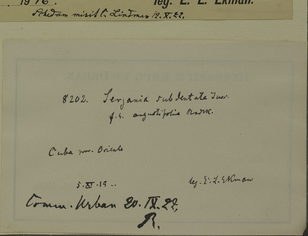 1916. leg. E. L. Ekman.
Schedam misit C. Lindman 19.IX.22.
8202. Serjania subdentata Juss.
f. angustifolia Radlk.
Cuba prov. Oriente
5.XI.19 leg. E. L. Ekman
Comm. Urban 20.IX.22,
R.